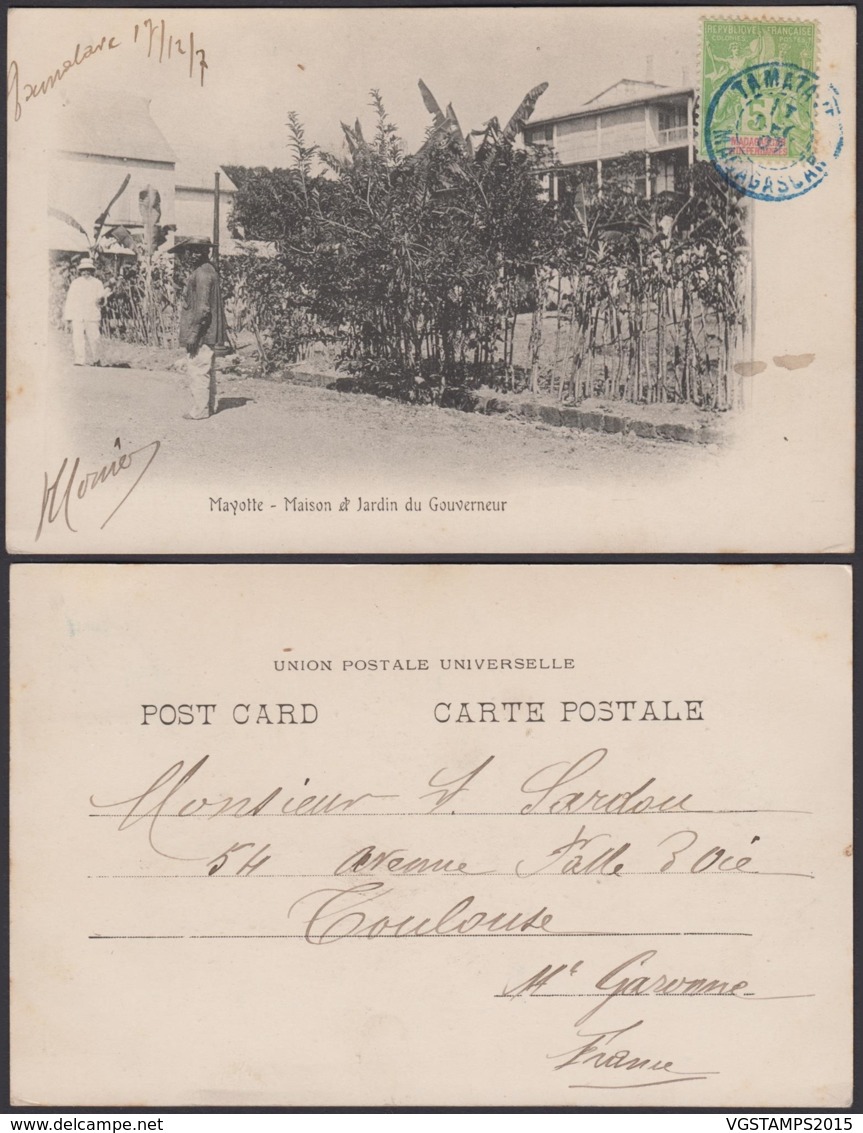 Tamatave 17/12/7
REPUBLIQUE FRANÇAISE
COLONIES POSTES
5
MADAGASCAR
ET DÉPENDANCES
TAMATAVE
17
DEC
MADAGASCAR
Mayotte - Maison et Jardin du Gouverneur
UNION POSTALE UNIVERSELLE
POST CARD CARTE POSTALE
Monsieur A. Sardou
54 avenue
Toulouse
Hte Garonne
France
VGSTAMPS2015